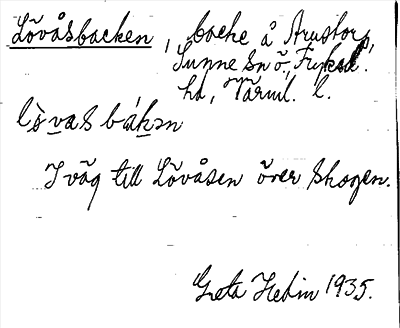 Lövåsbacken, backe å Arnstorp,
Sunne sn ö., Fryksd.
hd, Värml. l.
lò̤vas bákən
I väg till Lövåsen över skogen.
Greta Hedin 1935.